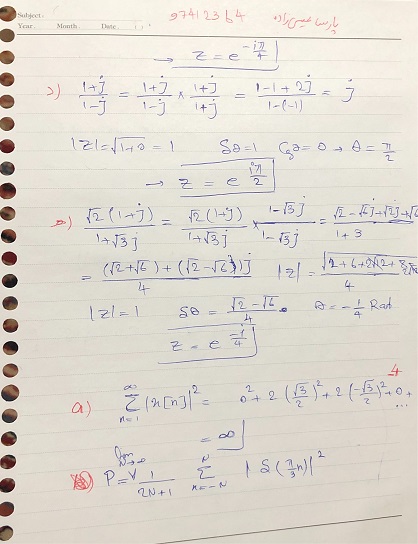 Subject:
Year. Month. Date.
97412364
→ z = e^{-iπ/4}
(1+j)/(1-j) = (1+j)/(1-j) × (1+j)/(1+j) = (1-1+2j)/(1-(-1)) = j
|z| = √(1+0) = 1 Sθ=1 Cθ=0 → θ = π/2
→ z = e^{iπ/2}
√2(1+j)/(1+√3j) = √2(1+j)/(1+√3j) × (1-√3j)/(1-√3j) = (√2-√6j+√2j+√6)/(1+3)
= ((√2+√6) + (√2-√6)j)/4 |z| =
|z| = 1 Sθ = (√2-√6)/4 θ = -1/4 Rad
z = e^{-i/4}
4
a) ∑_{n=1}^{∞} |x[n]|² = 0² + 2(√3/2)² + 2(-√3/2)² + 0 + ...
= ∞
P = lim_{N→∞} 1/(2N+1) ∑_{n=-N}^{N} |S(π/3 n)|²